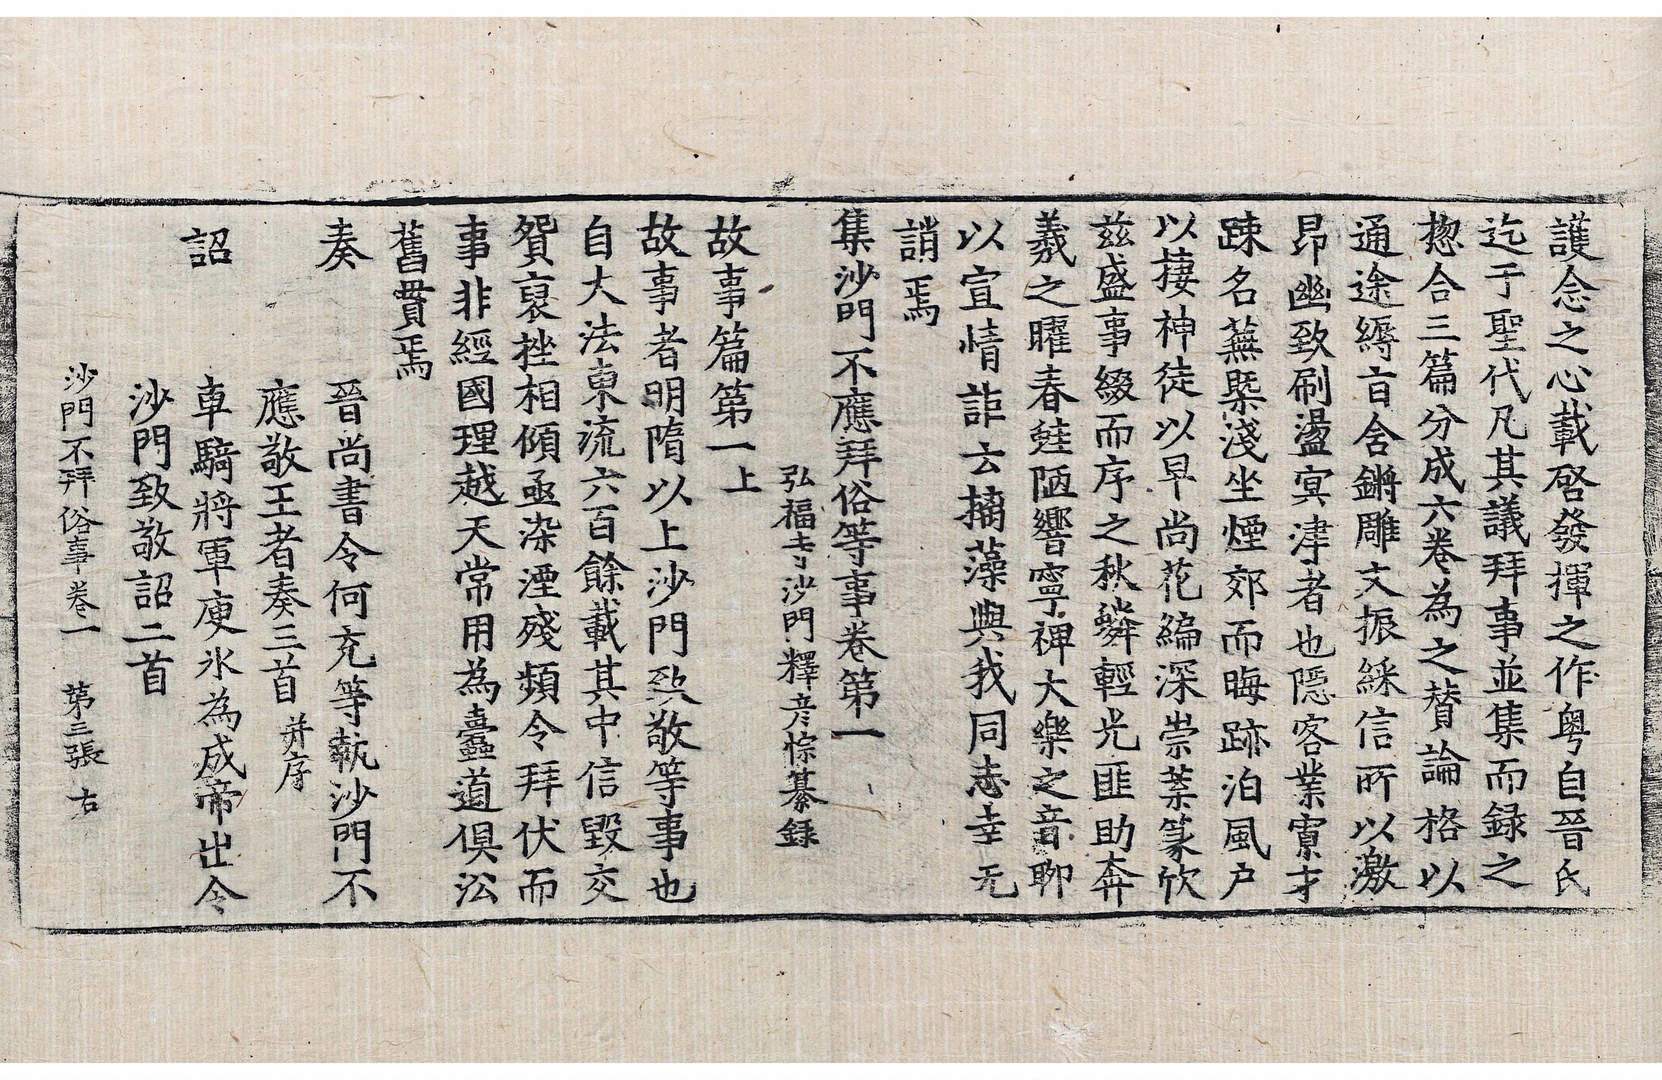 護念之心載啓發揮之作粤自晉氏
迄于聖代凡其議拜事並集而録之
惣合三篇分成六卷為之賛論格以
通途縟旨含鏘雕文振綵信所以激
昂幽致刷盪㝠津者也隠客業寮才
踈名蕪槩淺坐煙郊而晦跡泊風户
以棲神徒以早尚花編深崇葉篆欣
兹盛事綴而序之秋蟒輕光匪助奔
羲之曜春蛙陋響寧裨大樂之音聊
以宣情詎云摛藻與我同志幸无
誚焉
集沙門不應拜俗等事卷第一
弘福寺沙門釋彦悰纂録
故事篇第一上
故事者明隋以上沙門致敬等事也
自大法東流六百餘載其中信毀交
貿裒挫相傾亟染湮殘頻令拜伏而
事非經國理越天常用為蠧道俱㳂
舊貫焉
奏 晉尚書令何充等執沙門不
應敬王者奏三首 并序
詔 車騎將軍庾氷為成帝出令
沙門致敬詔二首
沙門不拜俗事卷一 第三張 右